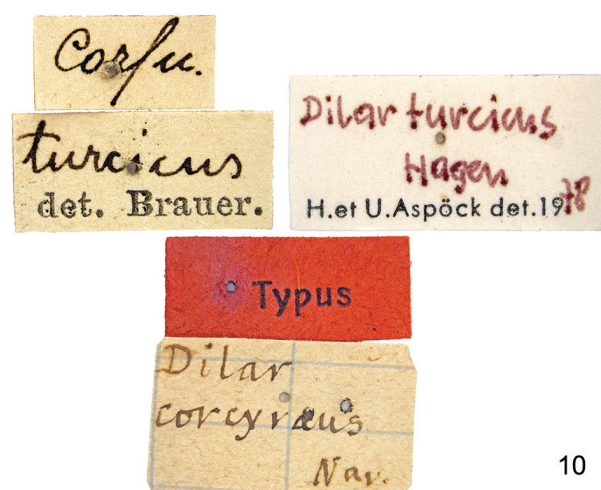 Corfu.
turcicus
det. Brauer.
Dilar turcicus
Hagen
H.et U.Aspöck det.1978
Typus
Dilar
corcyraeus
Nav.
10